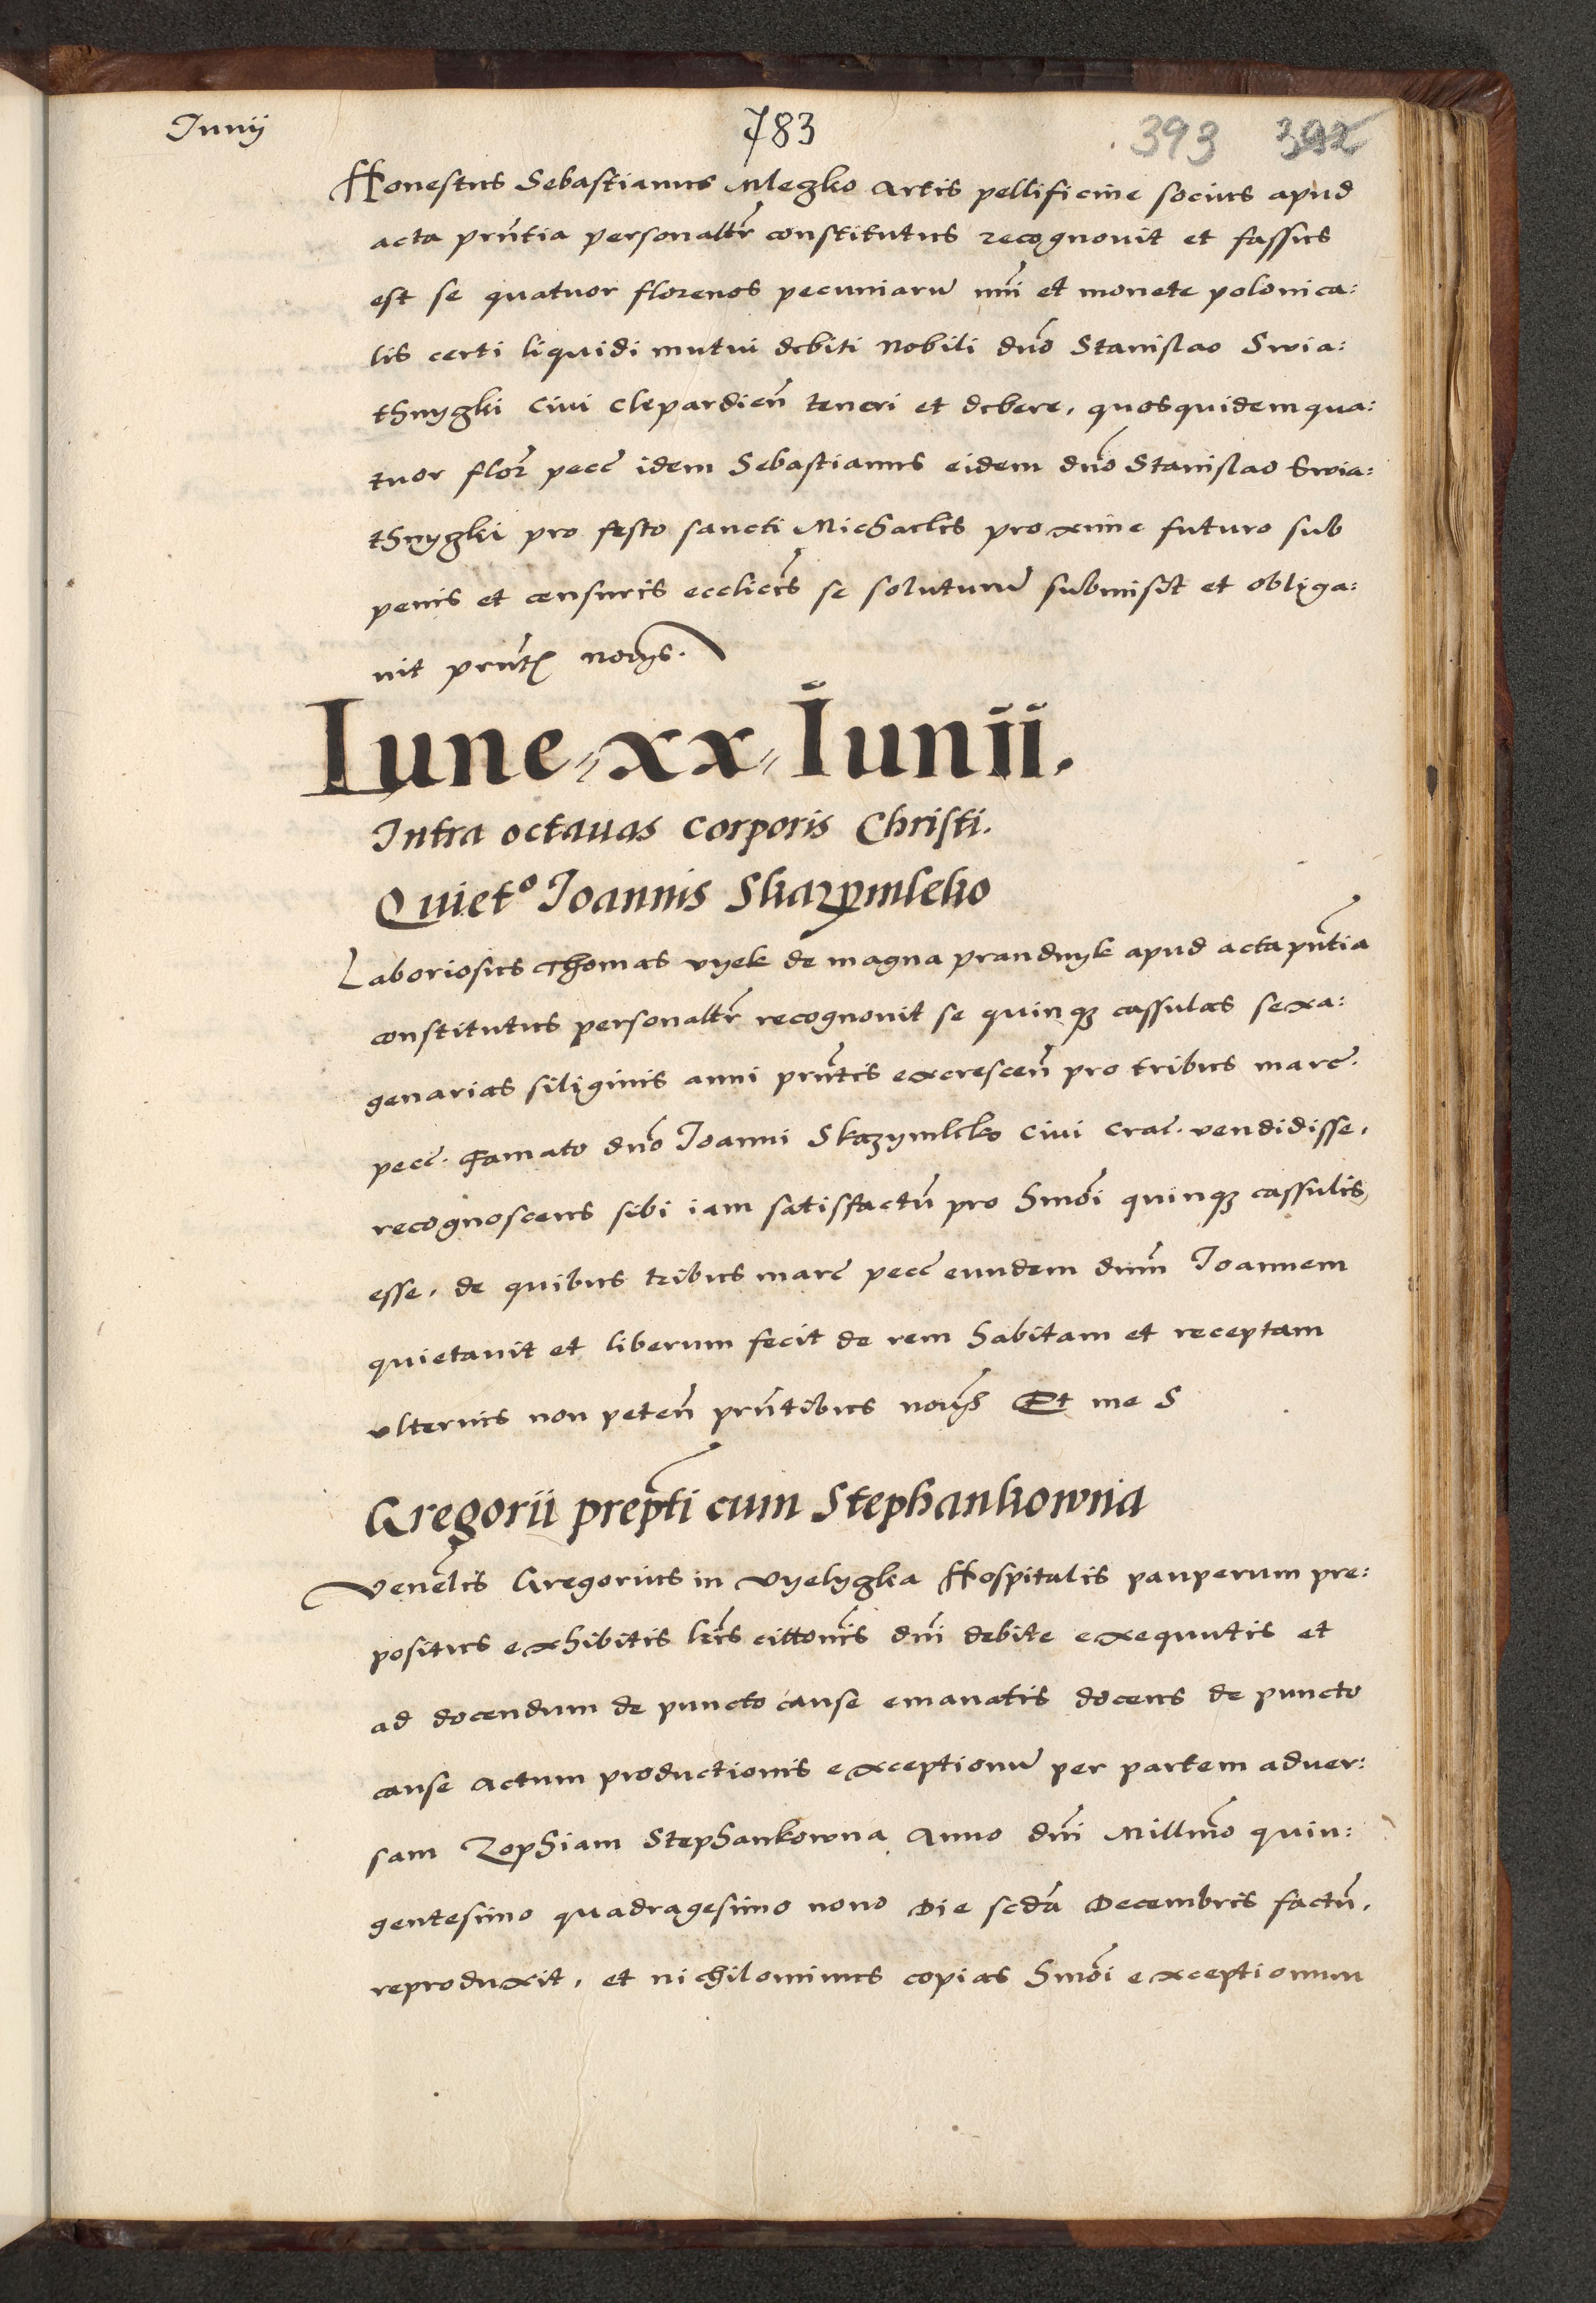 Junij 783 393 392
Honestus Sebastianus Mlegko Artis pellificine socius apud
acta prñtia personaltr̃ constitutus recognouit et fassus
est se quatuor florenos pecuniarũ nr̃i et monete polonica:
lis certi liquidi mutui debiti Nobili dño Stanislao Swia:
thnygki Ciui Clepardieñ teneri et debere, quosquidem qua:
tuor flor̃ pecc̃ idem Sebastianus eidem dño Stanislao Swia:
thnygki pro festo sancti Michaelis proxime futuro sub
penis et censuris ecclicis̃ se soluturũ submisit et obliga:
uit prñt nob̃ys.
Lune xx Iunii.
Intra octauas corporis Christi.
Quietº Joannis Skazymleko
Laboriosus Thomas vyek de magna prandnyk apud acta pñtia
constitutus personaltr̃ recognouit se quinq3 cassulas sexa:
genarias siliginis anni prñtis excresceñ pro tribus marc̃.
pecc̃. Famato dño Joanni Skazymleko Ciui Crac̃. vendidisse,
recognoscens sibi iam satisfactũ pro hmõi quinq3 cassulis
esse, de quibus tribus marc̃ pecc̃ eundem dñm Joannem
quietauit et liberum fecit de rem habitam et receptam
vlterius non peteñ prñtibus nob̃ys Et me S
Gregorii prepti cum Stephankowna
Veneb̃lis Gregorius in Vyelygka Hospitalis pauperum pre:
positus exhibitis lr̃is cittonis̃ dñi debite exequutis et
ad docendum de puncto cause emanatis docens de puncto
cause Actum productionis exceptionũ per partem aduer:
sam Zophiam Stephankowna Anno dñi Millmõ quin:
gentesimo quadragesimo nono Die scdã Decembris factũ,
reproduxit, et nichilominus copias hmõi exceptionum